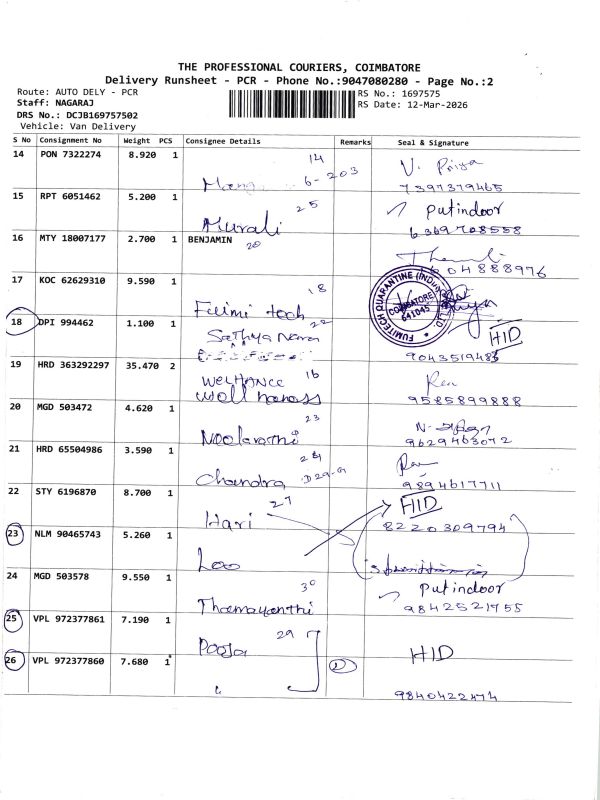 THE PROFESSIONAL COURIERS, COIMBATORE
Delivery Runsheet - PCR - Phone No.:9047080280 - Page No.:2
Route: AUTO DELY - PCR
Staff: NAGARAJ
DRS No.: DCJB169757502
Vehicle: Van Delivery
RS No.: 1697575
RS Date: 12-Mar-2026
S No Consignment No Weight PCS Consignee Details Remarks Seal & Signature
14 PON 7322274 8.920 1 14 6-203 V. Priya
7397379465
15 RPT 6051462 5.200 1 Murali 25 Putindoor
6369708558
16 MTY 18007177 2.700 1 BENJAMIN 20
04888976
17 KOC 62629310 9.590 1 18
FUMITECH QUARANTINE
COIMBATORE
641045
18 DPI 994462 1.100 1 Sathya 22 HID
19 HRD 363292297 35.470 2 WELHANCE 16
9585899888
20 MGD 503472 4.620 1 23
9629463072
21 HRD 65504986 3.590 1 Chandra 24 D29-G
9894617711
22 STY 6196870 8.700 1 Hari 27 HID
8220309794
23 NLM 90465743 5.260 1 Loo
24 MGD 503578 9.550 1 Thamayanthi 30 Putindoor
9842521755
25 VPL 972377861 7.190 1 Pooja 29 HID
26 VPL 972377860 7.680 1
9840422474